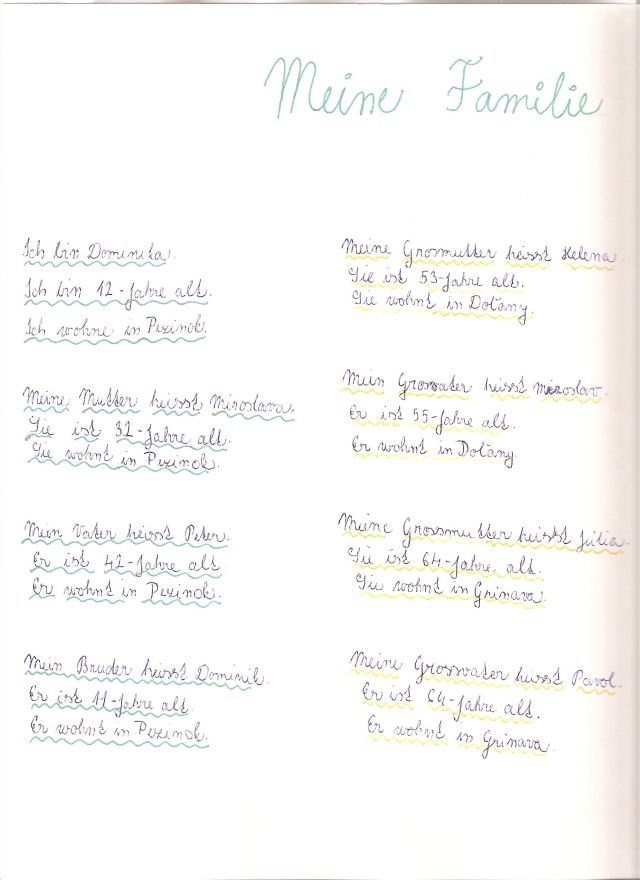 Meine Familie
Ich bin Dominika.
Ich bin 12-Jahre alt.
Ich wohne in Pezinok.
Meine Mutter heisst Miroslava.
Sie ist 32-Jahre alt.
Sie wohnt in Pezinok.
Mein Vater heisst Peter.
Er ist 42-Jahre alt.
Er wohnt in Pezinok.
Mein Bruder heisst Dominik.
Er ist 11-Jahre alt.
Er wohnt in Pezinok.
Meine Grosmutter heisst Helena.
Sie ist 53-Jahre alt.
Sie wohnt in Doľany.
Mein Grosvater heisst Miroslav.
Er ist 55-Jahre alt.
Er wohnt in Doľany.
Meine Grossmutter heisst Júlia.
Sie ist 64-Jahre alt.
Sie wohnt in Grinava.
Meine Grossvater heisst Pavol.
Er ist 64-Jahre alt.
Er wohnt in Grinava.